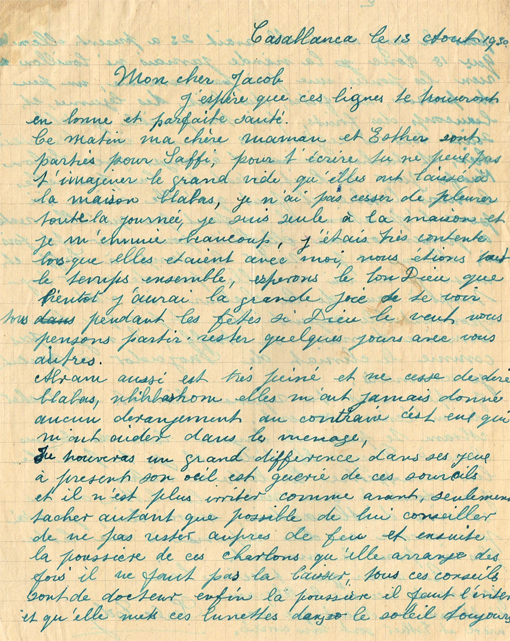 Casablanca le 13 Aout 1930
Mon cher Jacob
J'espère que ces lignes te trouveront
en bonne et parfaite santé.
Ce matin ma chère maman et Esther sont
parties pour Saffi, pour t'écrire tu ne peux pas
t'imaginer le grand vide qu'elles ont laissé à
la maison blabas, je n'ai pas cesser de pleurer
toute la journeé, je suis seule à la maison et
je m'ennuie beaucoup, j'étais très contente
lorsque elles étaient avec moi, nous étions tout
le temps ensemble, esperons le bon Dieu que
bientot j'aurai la grande joie de se voir
tous dans pendant les fêtes si Dieu le veut nous
pensons partir rester quelques jours avec vous
autres.
Abram aussi est très peiné et ne cesse de dire
blabas, elles m'ont jamais donné
aucun derangement au contraire c'est eux qui
m'ont aider dans le menage,
Tu trouveras un grand différence dans ses yeux
à present son oeil est guerie de ces sourcils
et il n'est plus irriter comme avant, seulement
tacher autant que possible de lui conseiller
de ne pas rester aupres de feu et ensuite
la poussiere de ces charbons qu'elle arrange des
fois il ne faut pas la laisser, tous ces conseils
sont de docteur enfin la poussiere il faut l'éviter
et qu'elle met ces lunettes dans le soleil toujours